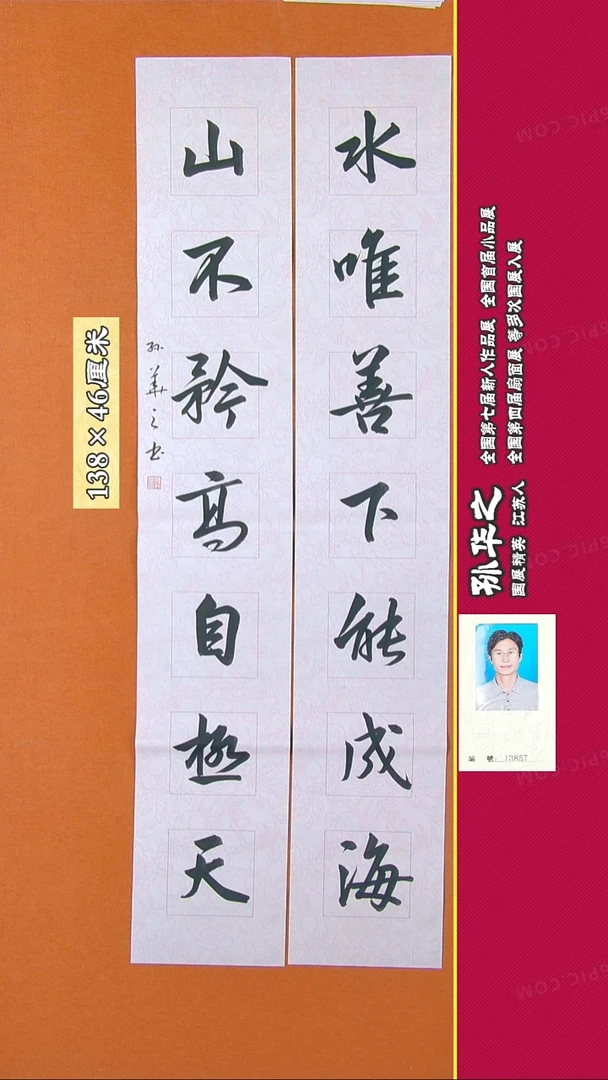 水唯善下能成海
山不矜高自極天
孙華之书
138×46厘米
孙华之
国展精英 江苏人
全国第七届新人作品展 全国首届小品展
全国第四届扇面展 等多次国展入展
編 號: 13857